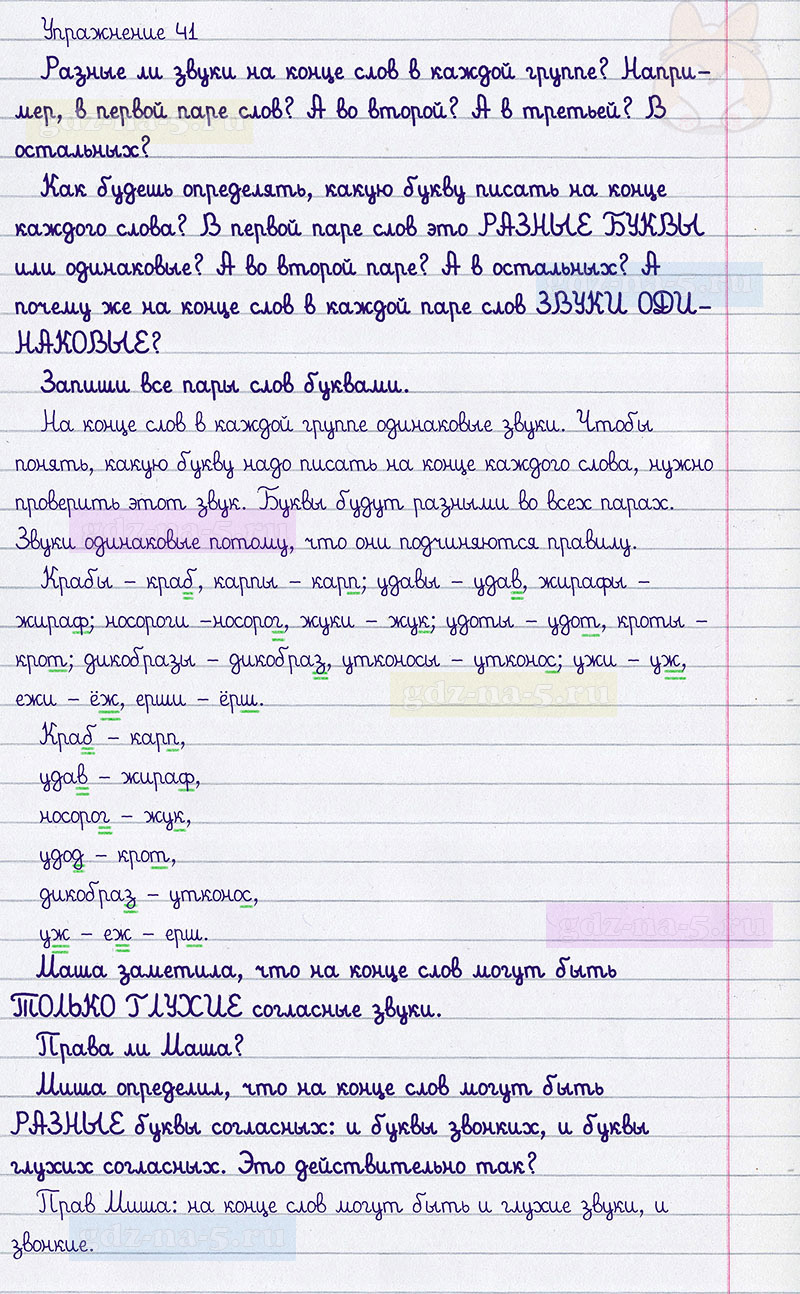 Упражнение 41
Разные ли звуки на конце слов в каждой группе? Напри-
мер, в первой паре слов? А во второй? А в третьей? В
остальных?
Как будешь определять, какую букву писать на конце
каждого слова? В первой паре слов это РАЗНЫЕ БУКВЫ
или одинаковые? А во второй паре? А в остальных? А
почему же на конце слов в каждой паре слов ЗВУКИ ОДИ-
НАКОВЫЕ?
Запиши все пары слов буквами.
На конце слов в каждой группе одинаковые звуки. Чтобы
понять, какую букву надо писать на конце каждого слова, нужно
проверить этот звук. Буквы будут разными во всех парах.
Звуки одинаковые потому, что они подчиняются правилу.
Крабы – краб, карпы – карп; удавы – удав, жирафы –
жираф; носороги –носорог, жуки – жук; удоты – удот, кроты –
крот; дикобразы – дикобраз, утконосы – утконос; ужи – уж,
ежи – ёж, ерши – ёрш.
Краб – карп,
удав – жираф,
носорог – жук,
удод – крот,
дикобраз – утконос,
уж – еж – ерш.
Маша заметила, что на конце слов могут быть
ТОЛЬКО ГЛУХИЕ согласные звуки.
Права ли Маша?
Миша определил, что на конце слов могут быть
РАЗНЫЕ буквы согласных: и буквы звонких, и буквы
глухих согласных. Это действительно так?
Прав Миша: на конце слов могут быть и глухие звуки, и
звонкие.
gdz-na-5.ru
gdz-na-5.ru
gdz-na-5.ru
gdz-na-5.ru
gdz-na-5.ru
gdz-na-5.ru